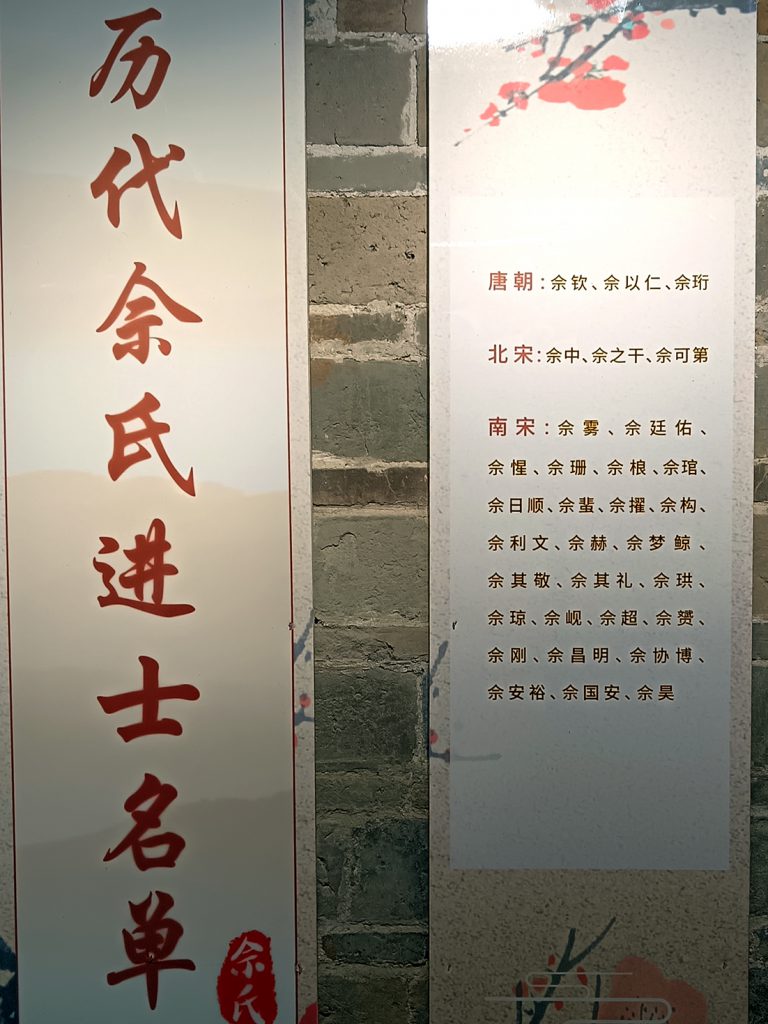 历代佘氏进士名单
佘氏
唐朝:佘钦、佘以仁、佘珩
北宋:佘中、佘之干、佘可第
南宋:佘雾、佘廷佑、
佘惺、佘珊、佘桹、佘琯、
佘日顺、佘蜚、佘擢、佘构、
佘利文、佘赫、佘梦鲸、
佘其敬、佘其礼、佘珙、
佘琼、佘岘、佘超、佘赟、
佘刚、佘昌明、佘协博、
佘安裕、佘国安、佘昊